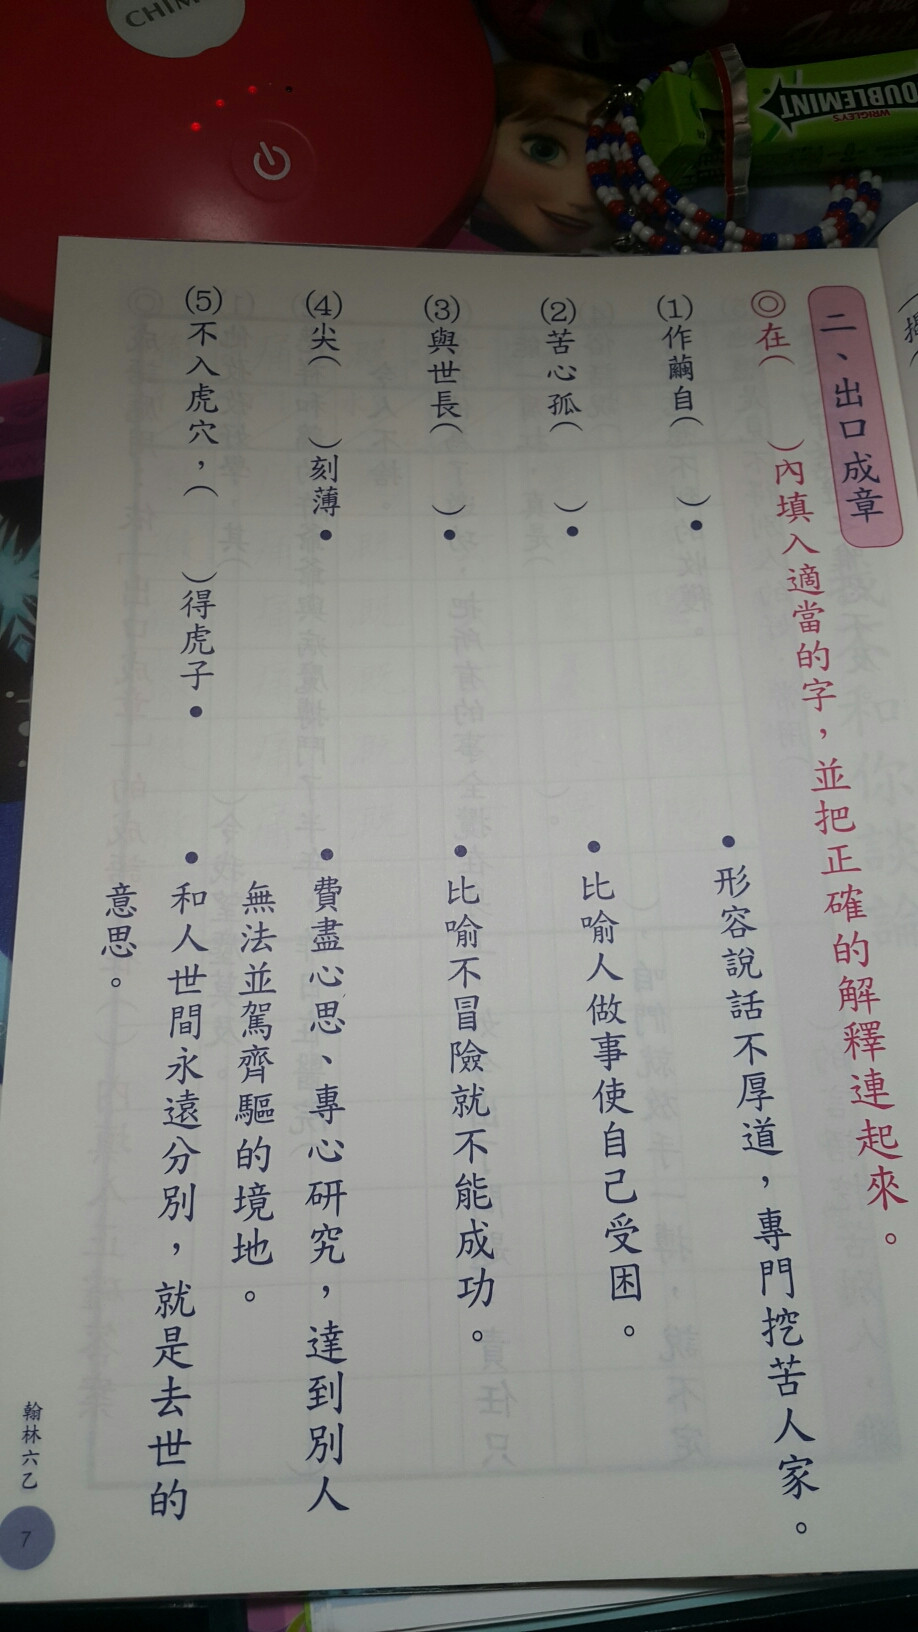 CHIM
DOUBLEMINT
WRIGLEY'S
二、出口成章
◎在（　）內填入適當的字，並把正確的解釋連起來。
(1)作繭自（　）●
(2)苦心孤（　）●
(3)與世長（　）●
(4)尖（　）刻薄●
(5)不入虎穴，（　）得虎子●
●形容說話不厚道，專門挖苦人家。
●比喻人做事使自己受困。
●比喻不冒險就不能成功。
●費盡心思、專心研究，達到別人
無法並駕齊驅的境地。
●和人世間永遠分別，就是去世的
意思。
翰林六乙
7